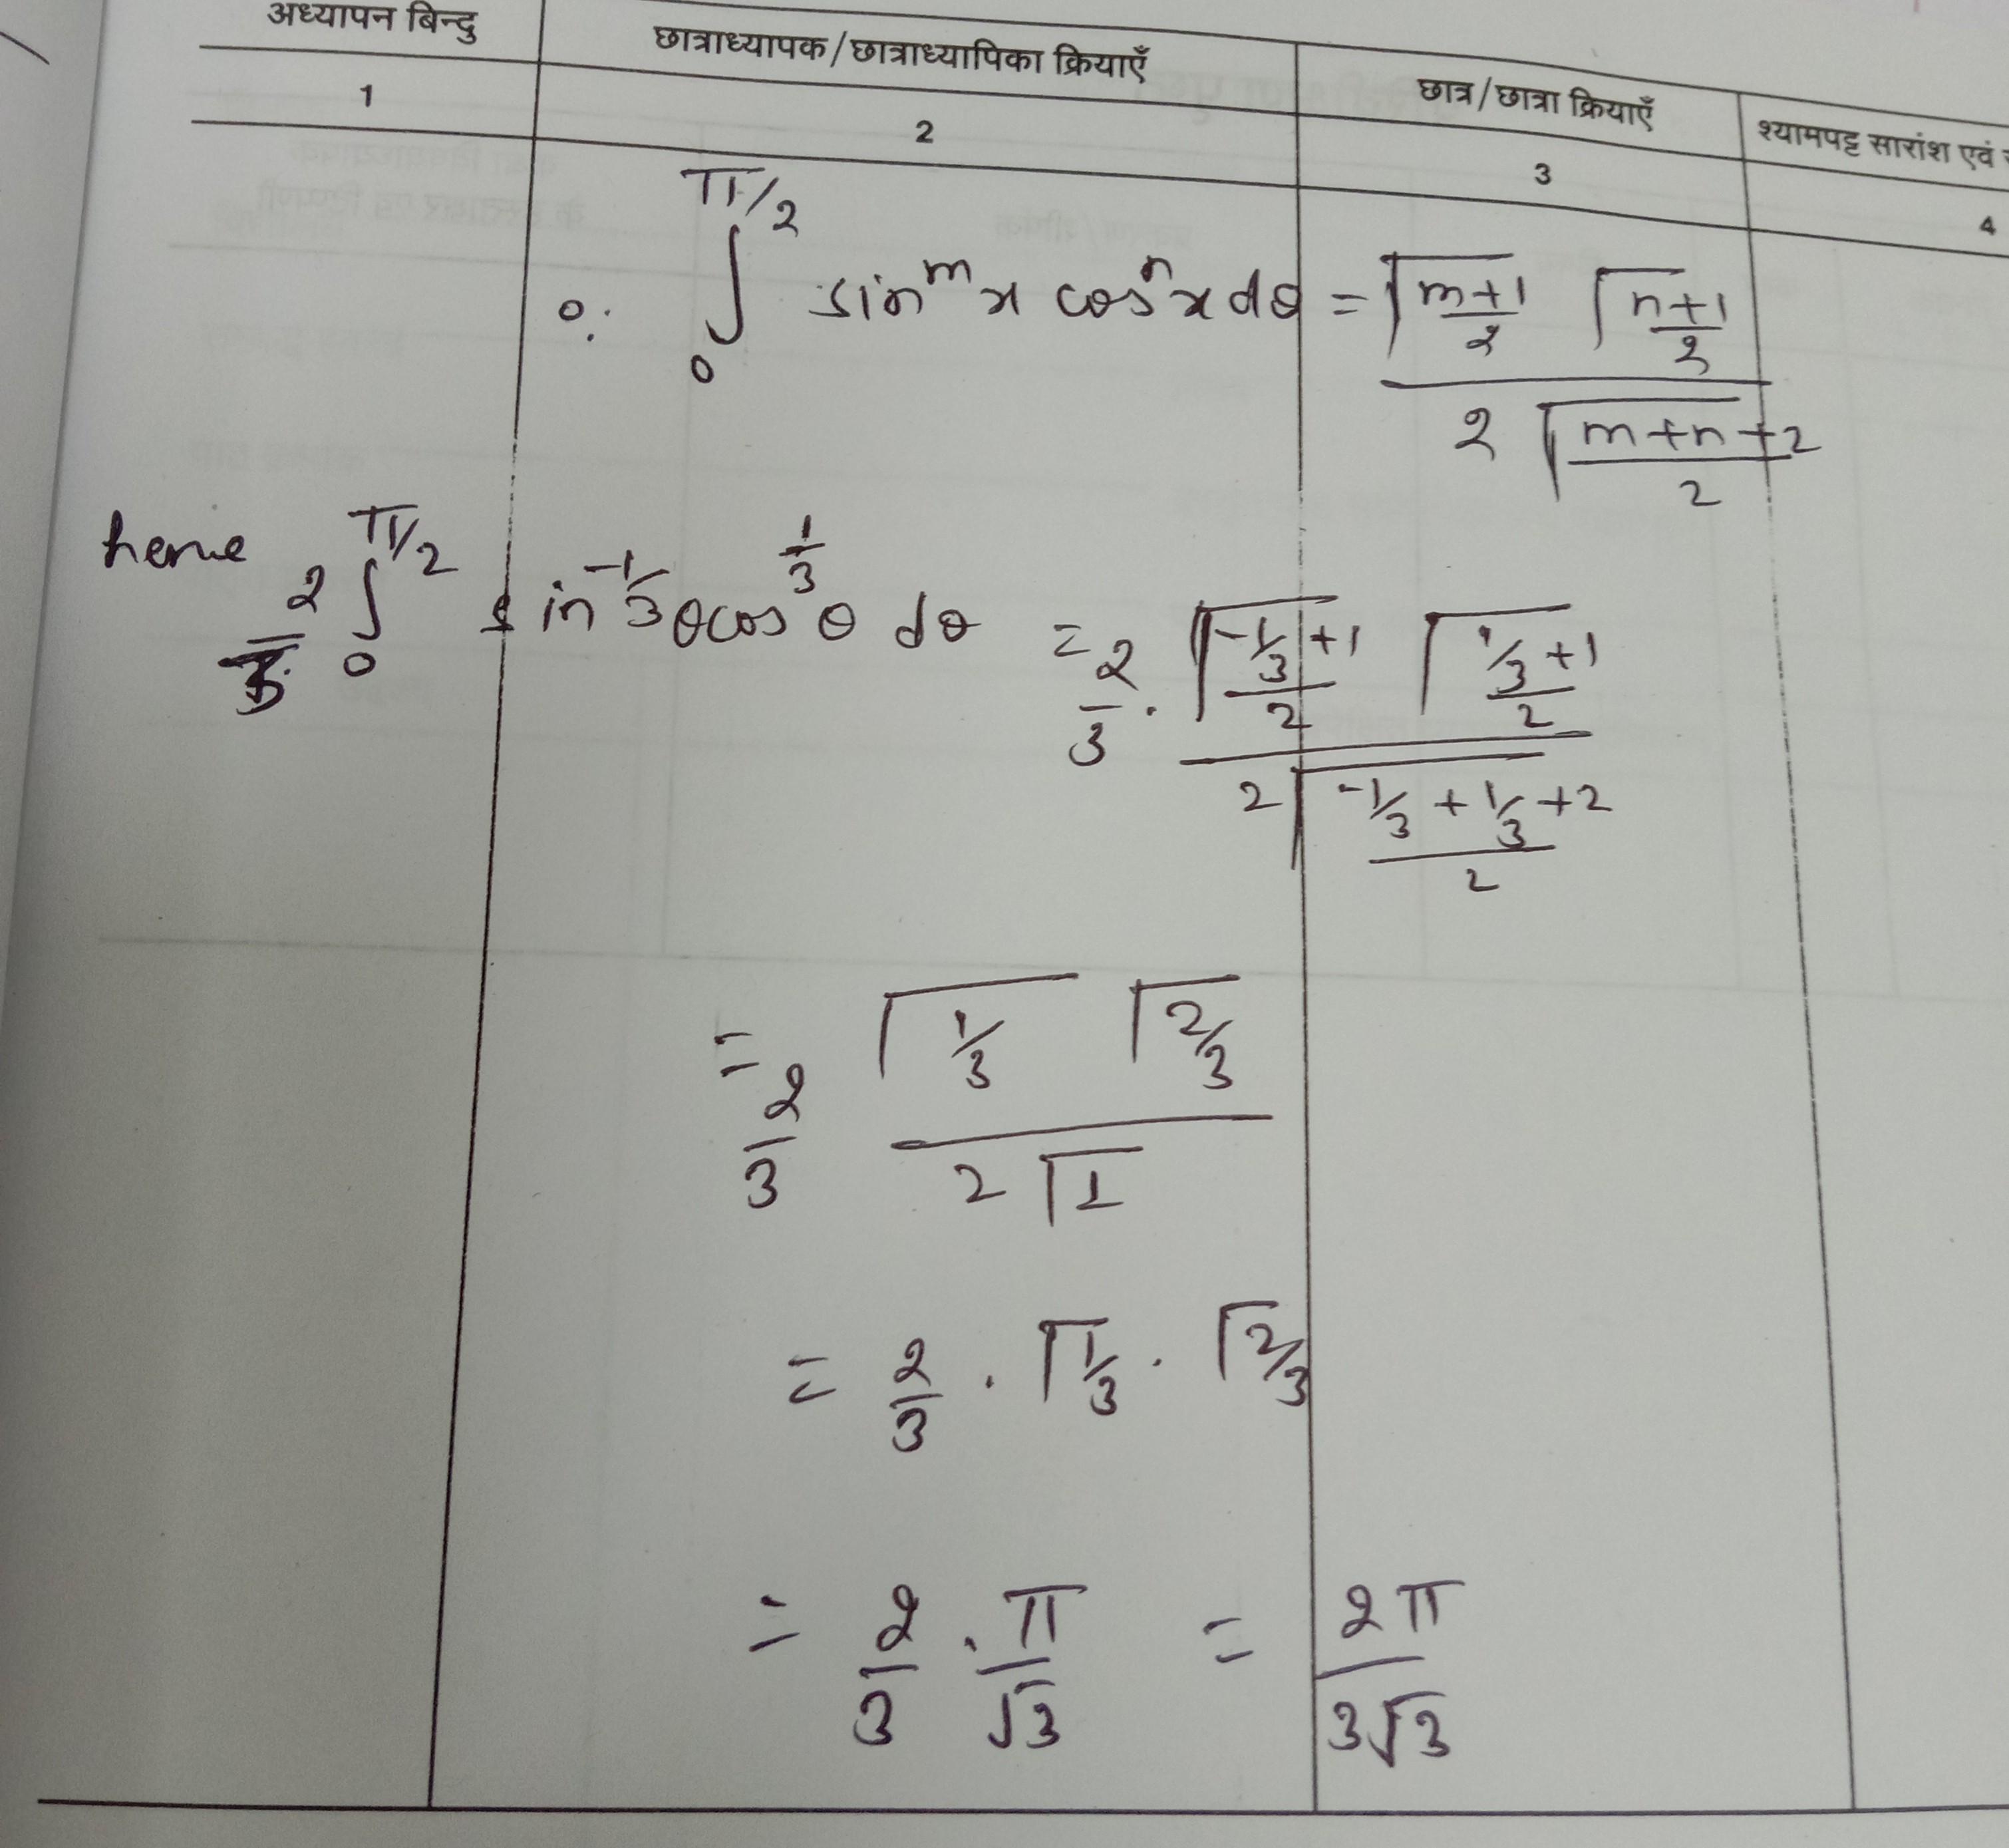 अध्यापन बिन्दु छात्राध्यापक/छात्राध्यापिका क्रियाएँ छात्र/छात्रा क्रियाएँ श्यामपट्ट सारांश एवं
1 2 3 4
∵ ∫₀^(π/2) sin^m x cos^n x dθ = (Γ((m+1)/2) Γ((n+1)/2)) / (2 Γ((m+n+2)/2))
hence 2/3 ∫₀^(π/2) sin^(-1/3) θ cos^(1/3) θ dθ = 2/3 · (Γ((-1/3+1)/2) Γ((1/3+1)/2)) / (2 Γ((-1/3+1/3+2)/2))
= 2/3 (Γ(1/3) Γ(2/3)) / (2 Γ(1))
= 2/3 · Γ(1/3) · Γ(2/3)
= 2/3 · π/√3 = 2π/(3√3)